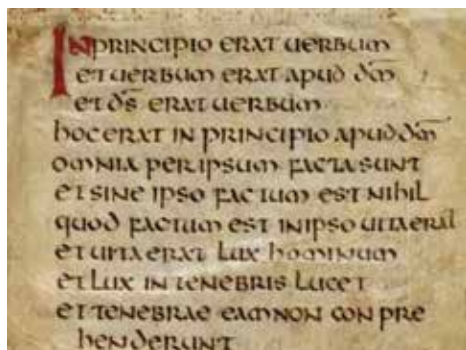 IN PRINCIPIO ERAT UERBUM
ET UERBUM ERAT APUD DM̄
ET DS̄ ERAT UERBUM
HOC ERAT IN PRINCIPIO APUD DM̄
OMNIA PER IPSUM FACTA SUNT
ET SINE IPSO FACTUM EST NIHIL
QUOD FACTUM EST IN IPSO UITA ERAT
ET UITA ERAT LUX HOMINUM
ET LUX IN TENEBRIS LUCET
ET TENEBRAE EAM NON CONPRE
HENDERUNT